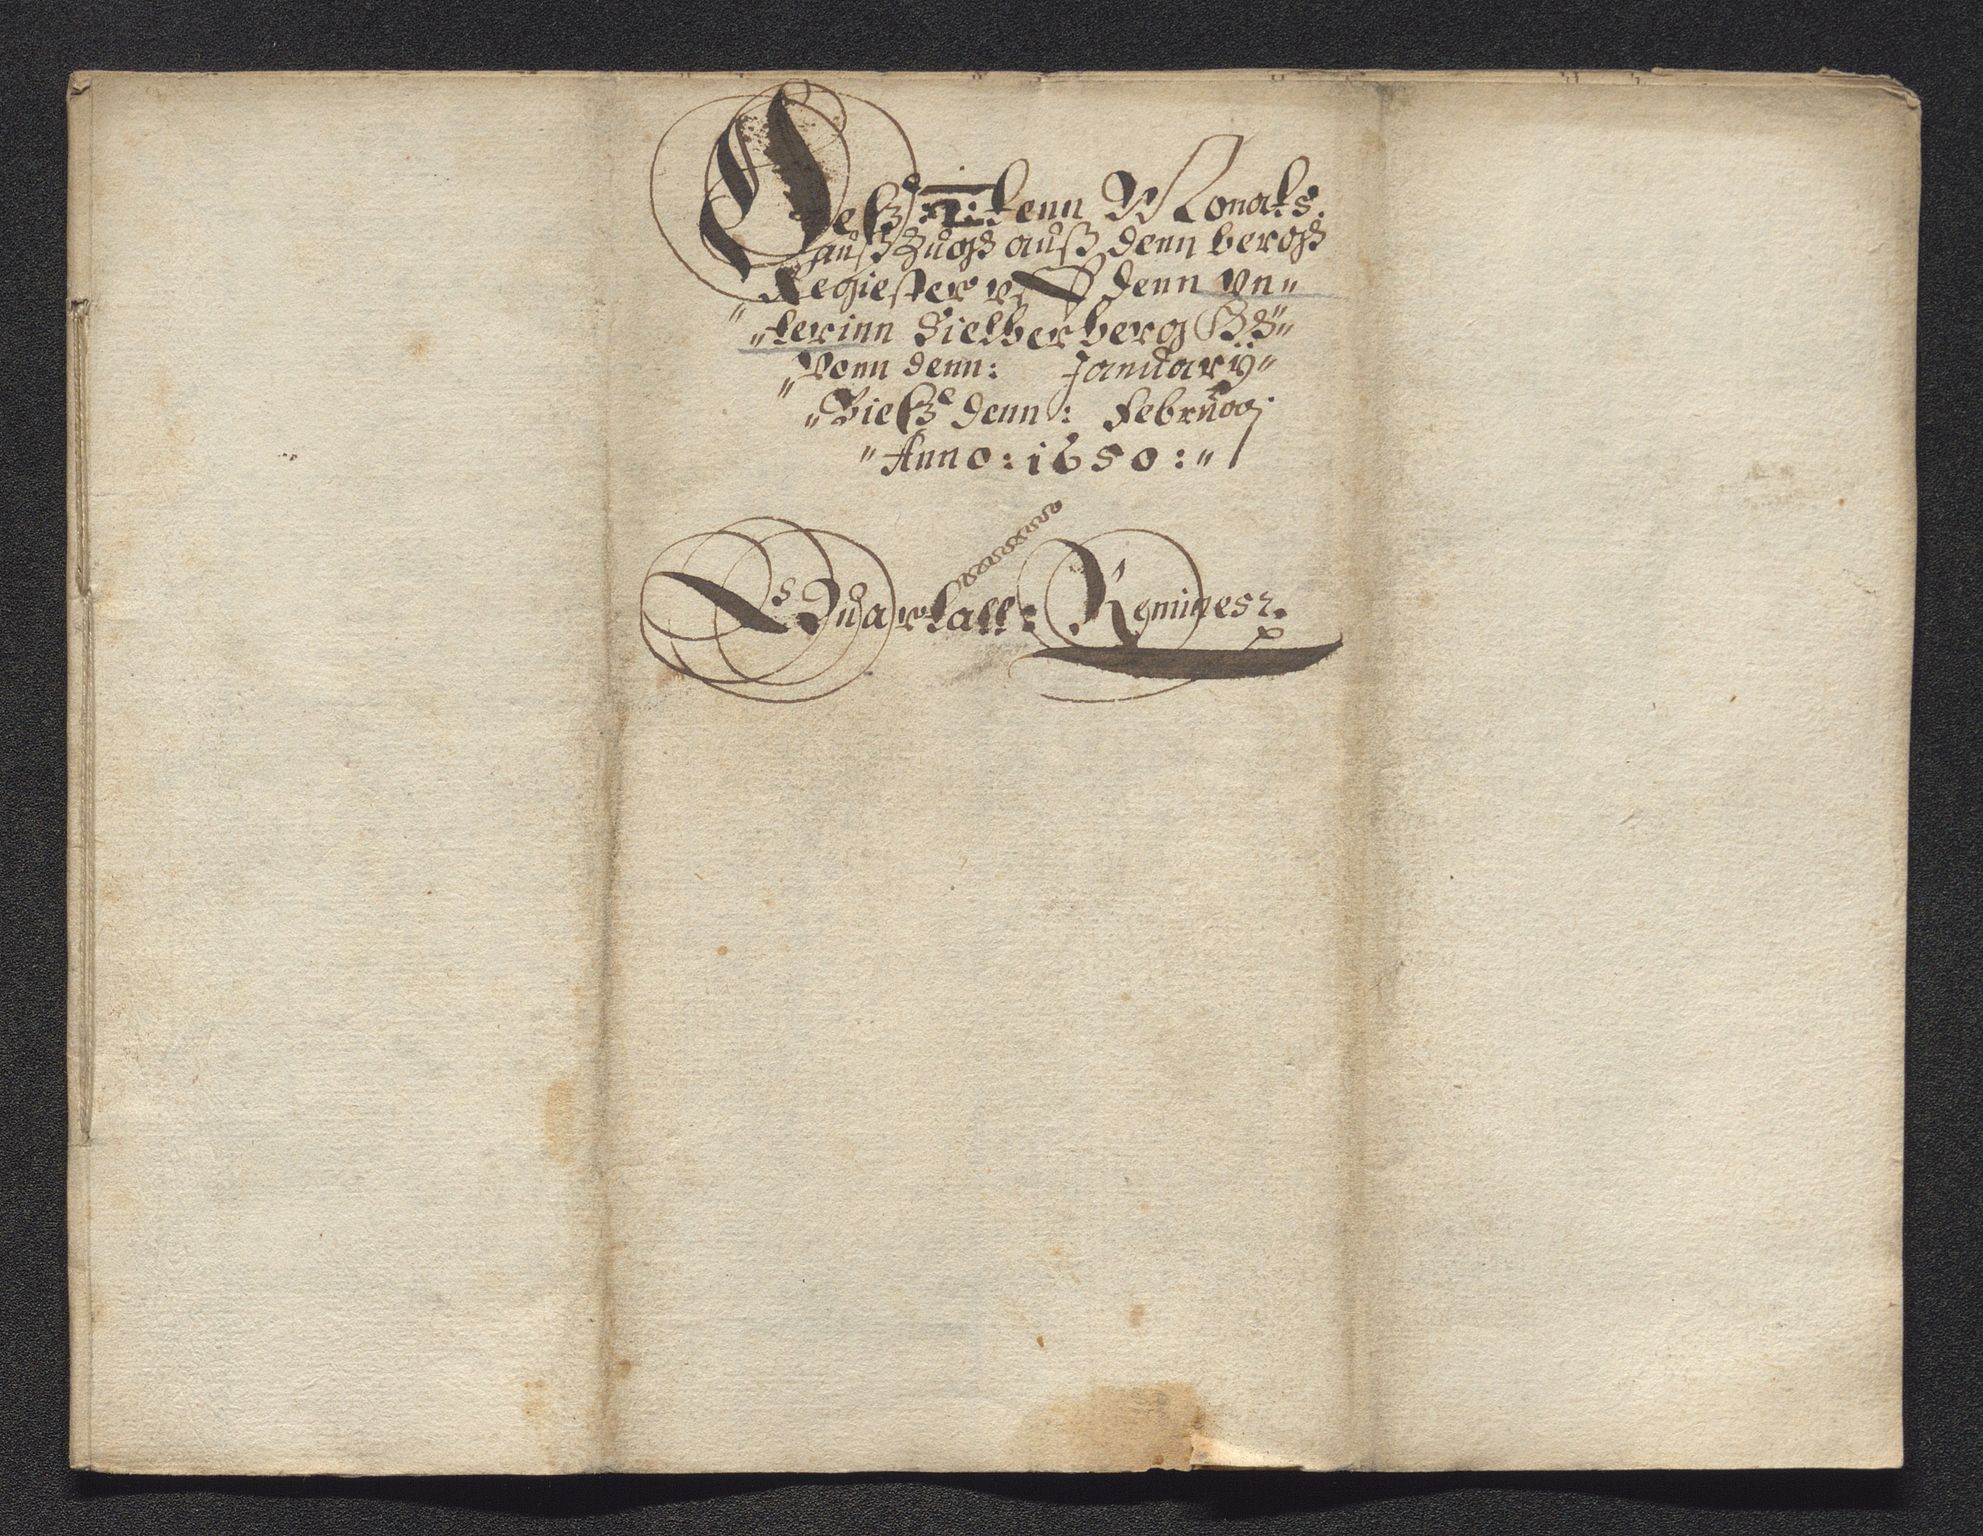 Deß II tenn Monats
außZugs auß denn bergs
Register vff denn vn"
"terinn Sielberberg
"Vonn denn: January"
"Bieß denn: Februarj
"Anno: 1650:"
Quartall: Reminesz.